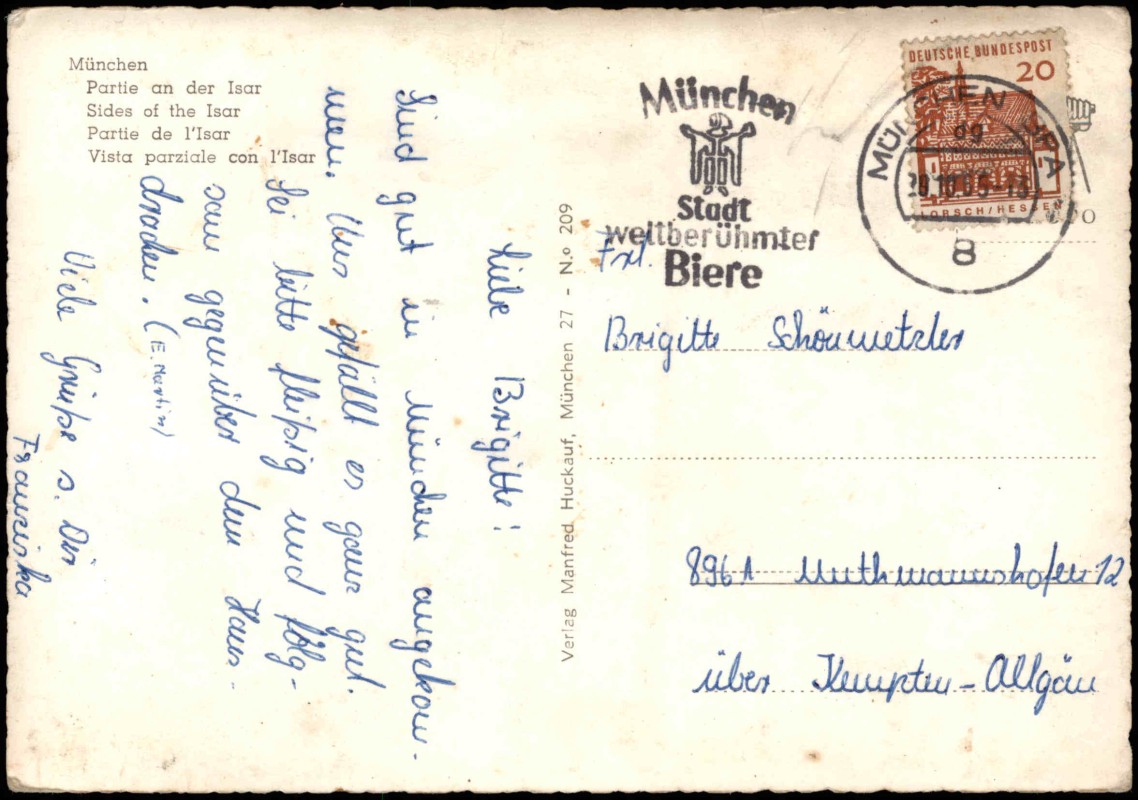 München
Partie an der Isar
Sides of the Isar
Partie de l'Isar
Vista parziale con l'Isar
Liebe Brigitte!
Sind gut in München angekom-
men. Uns gefällt es ganz gut.
Sei bitte fleißig und folg-
sam gegenüber dem Haus-
drachen. (E. Martin)
Viele Grüße s. Dir
Franziska
Verlag Manfred Huckauf, München 27 - N.o 209
München
Stadt
weltberühmter
Biere
DEUTSCHE BUNDESPOST
20
LORSCH/HESSEN
MÜNCHEN
8
Frl.
Brigitte Schönmetzler
896 A Muthmannshofen 12
über Kempten-Allgäu